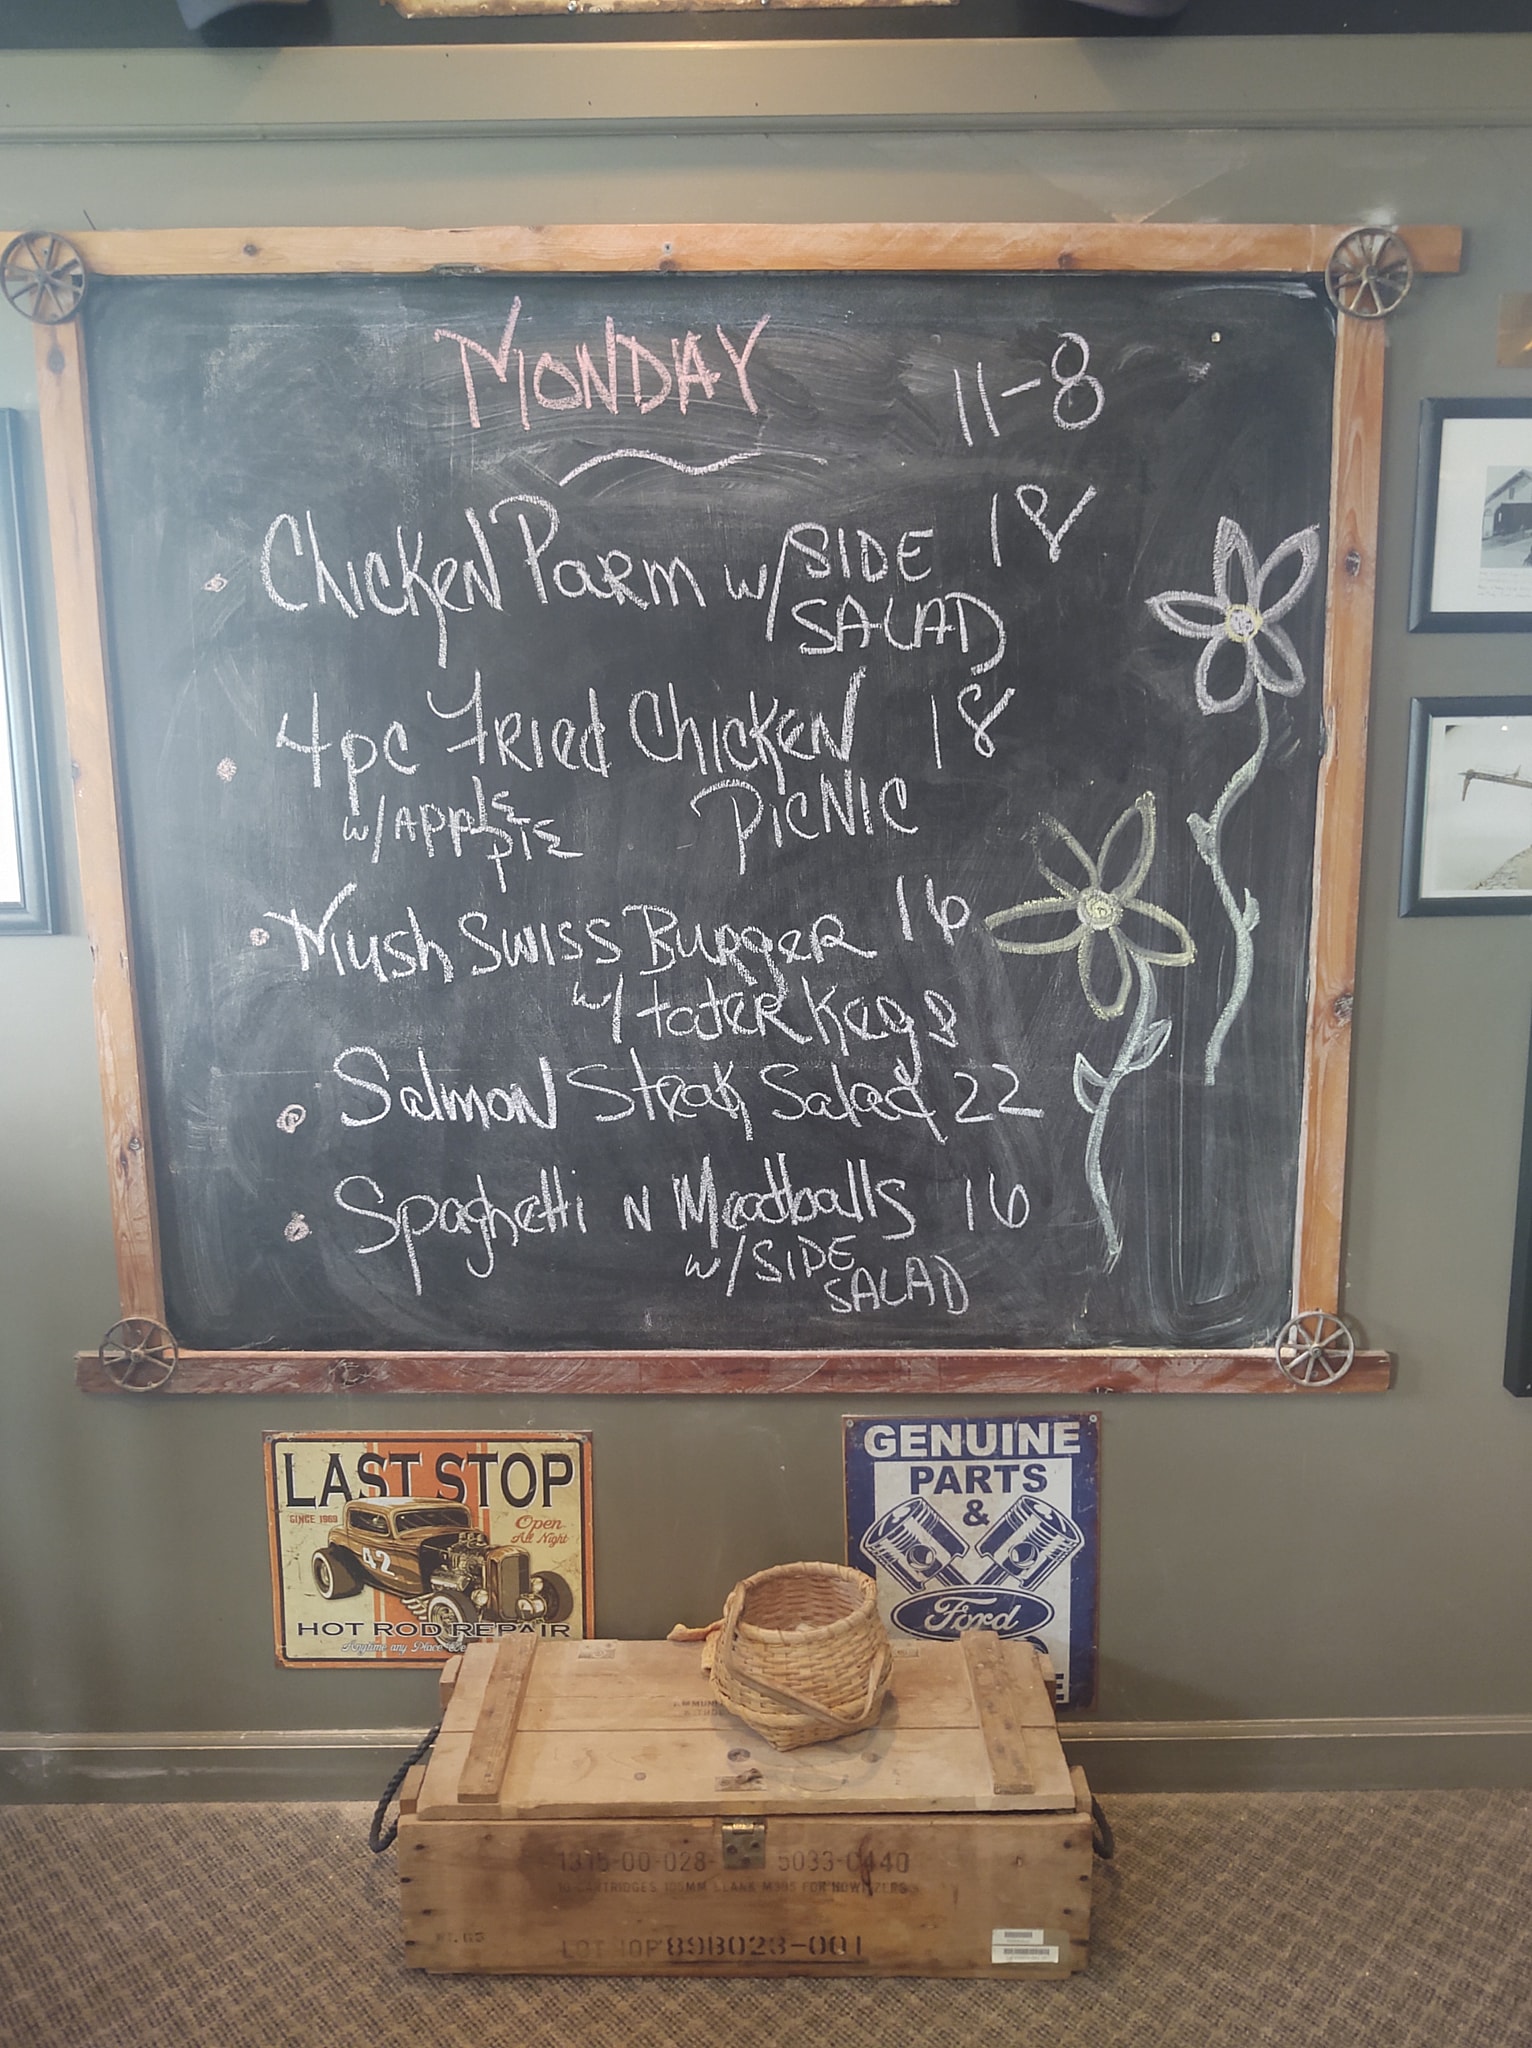 MONDAY 11-8
Chicken Parm w/ SIDE 18
SALAD
4pc Fried Chicken 18
w/ APPLE PICNIC
PIE
Mush Swiss Burger 16
w/ tater Kegs
Salmon Steak Salad 22
Spaghetti N Meatballs 16
w/ SIDE
SALAD
LAST STOP
SINCE 1969
Open
All Night
42
HOT ROD REPAIR
Anytime any Place
GENUINE
PARTS
&
Ford
E
1315-00-028- 5033-C440
10 CARTRIDGES 105MM BLANK M395 FOR HOWITZERS
LOT IOP 89B023-001